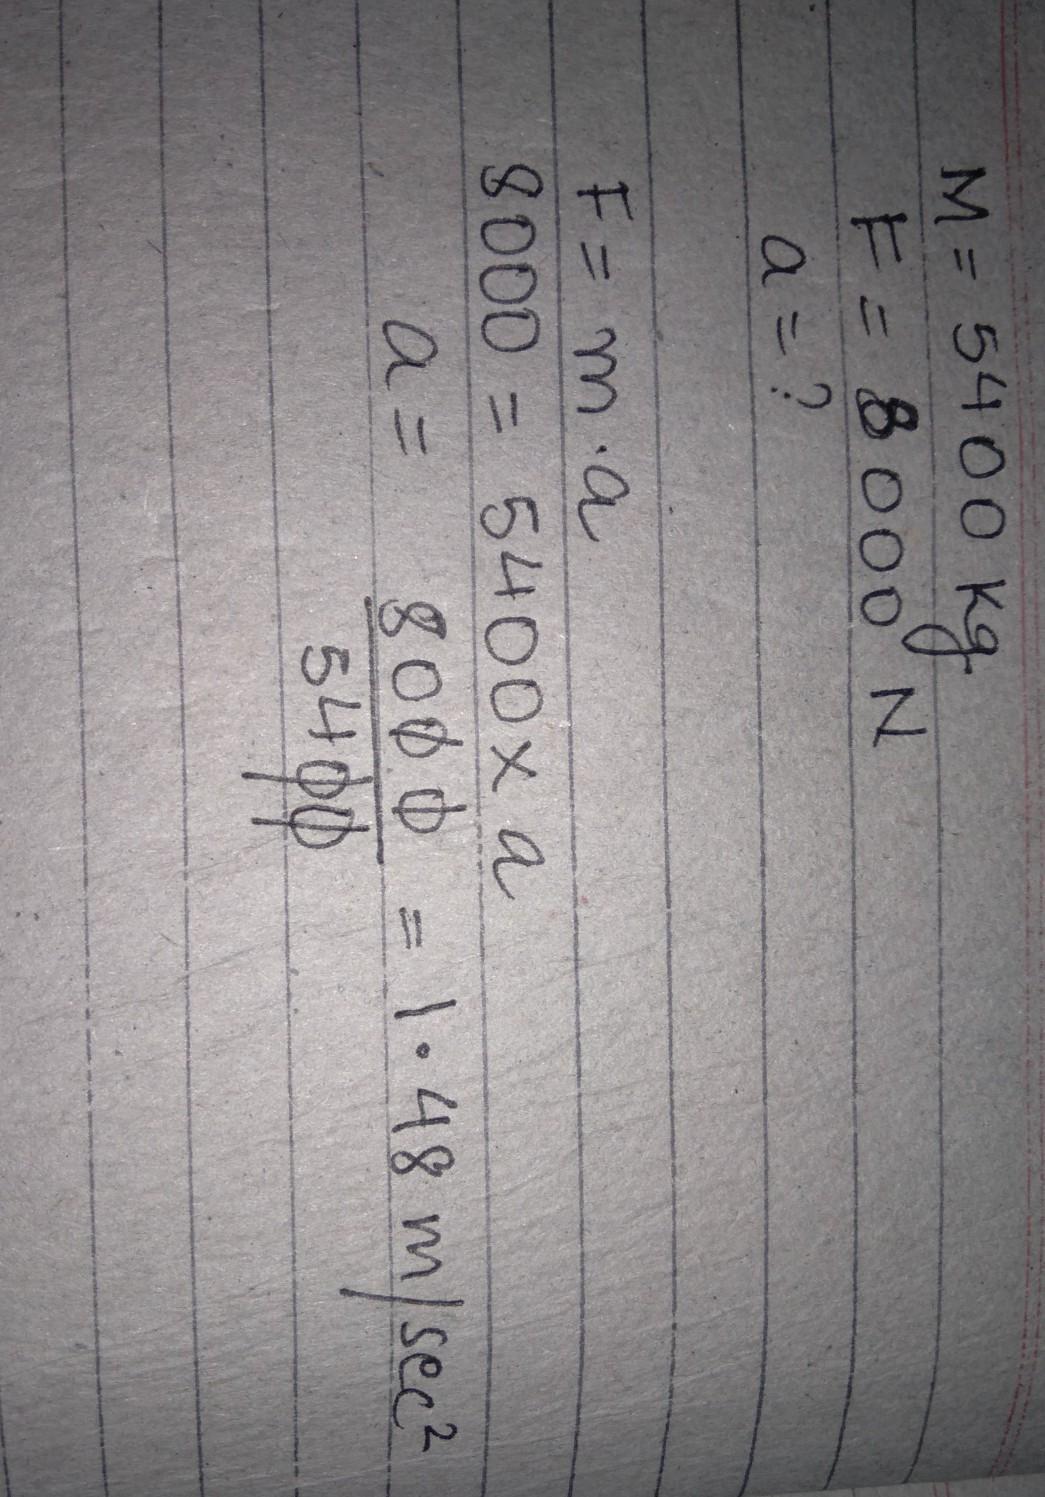 M = 5400 kg
F = 8000 N
a = ?
F = m·a
8000 = 5400 x a
a = 8000/5400 = 1·48 m/sec²